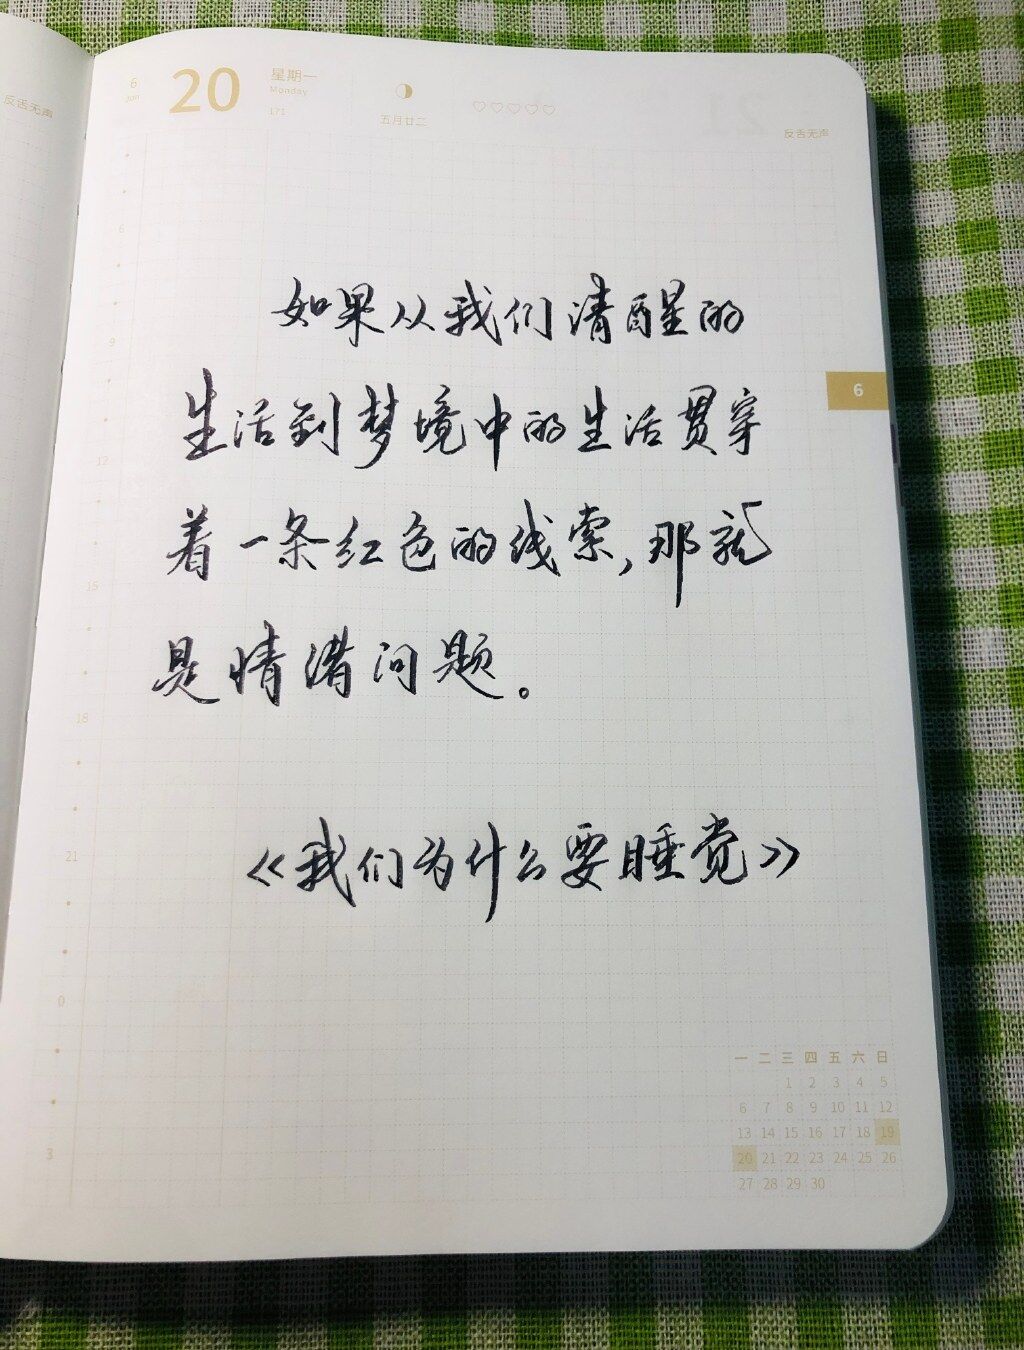 反舌无声
6 20 星期一
Jun Monday
171
五月廿二
♡♡♡♡♡
21
反舌无声
6
9
12
15
18
21
0
3
6
如果从我们清醒的
生活到梦境中的生活贯穿
着一条红色的线索，那就
是情绪问题。
《我们为什么要睡觉》
一 二 三 四 五 六 日
1 2 3 4 5
6 7 8 9 10 11 12
13 14 15 16 17 18 19
20 21 22 23 24 25 26
27 28 29 30